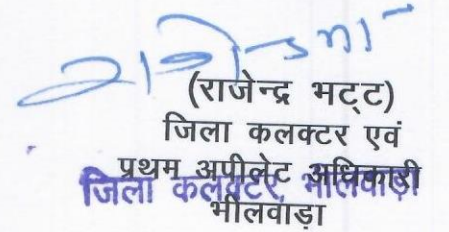 (राजेन्द्र भट्ट)
जिला कलक्टर एवं
प्रथम अपीलेट अधिकारी
जिला कलेक्टर, भीलवाड़ा
भीलवाड़ा